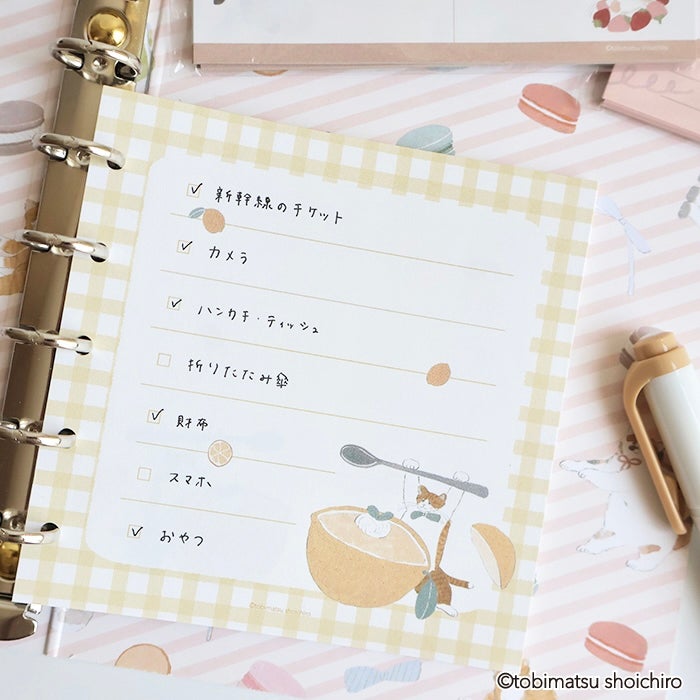 ©tobimatsu shoichiro
新幹線のチケット
カメラ
ハンカチ・ティッシュ
折りたたみ傘
財布
スマホ
おやつ
©tobimatsu shoichiro
©tobimatsu shoichiro